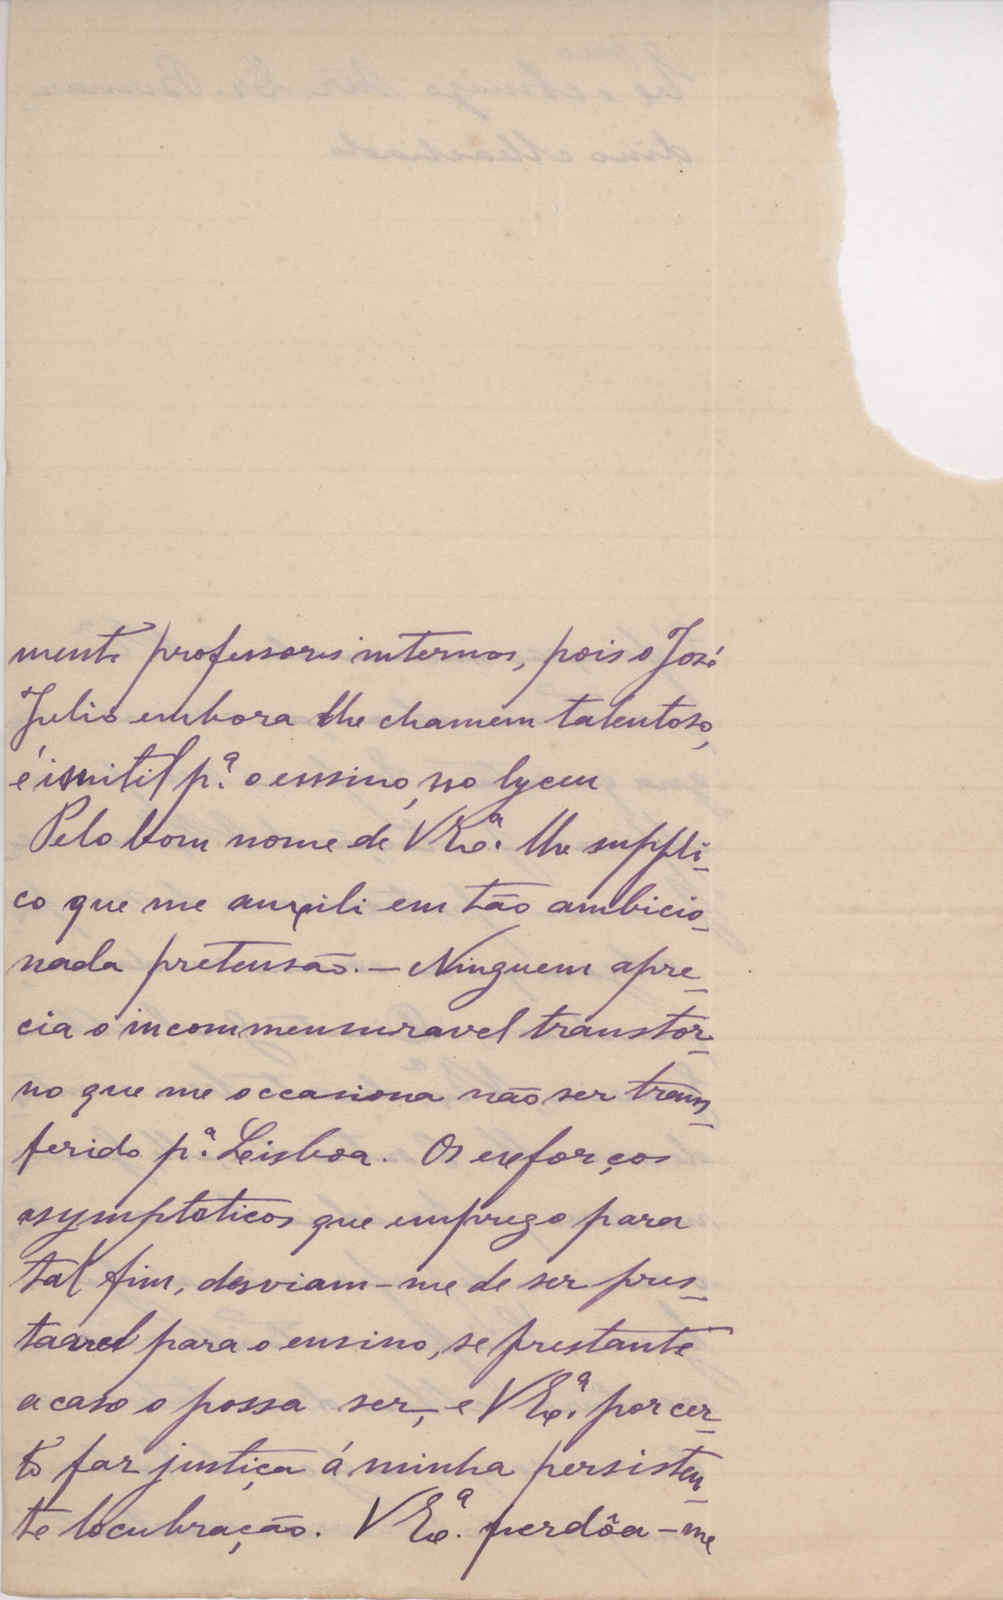 mente professores internos, pois o José
Julio embora lhe chamem talentoso,
é inutil pª. o ensino, no lyceu
Pelo bom nome de V Exª. lhe suppli-
co que me auxili em tão ambicio-
nada pretensão. — Ninguem apre-
cia o incommensuravel transtor-
no que me occasiona não ser trans-
ferido pª. Lisboa. Os exforços
asymptoticos que emprego para
tal fim, desviam-me de ser pres-
tavel para o ensino, se prestante
acaso o possa ser, e V Exª. por cer-
to faz justiça á minha persisten-
te locubração. V Exª. perdôa-me